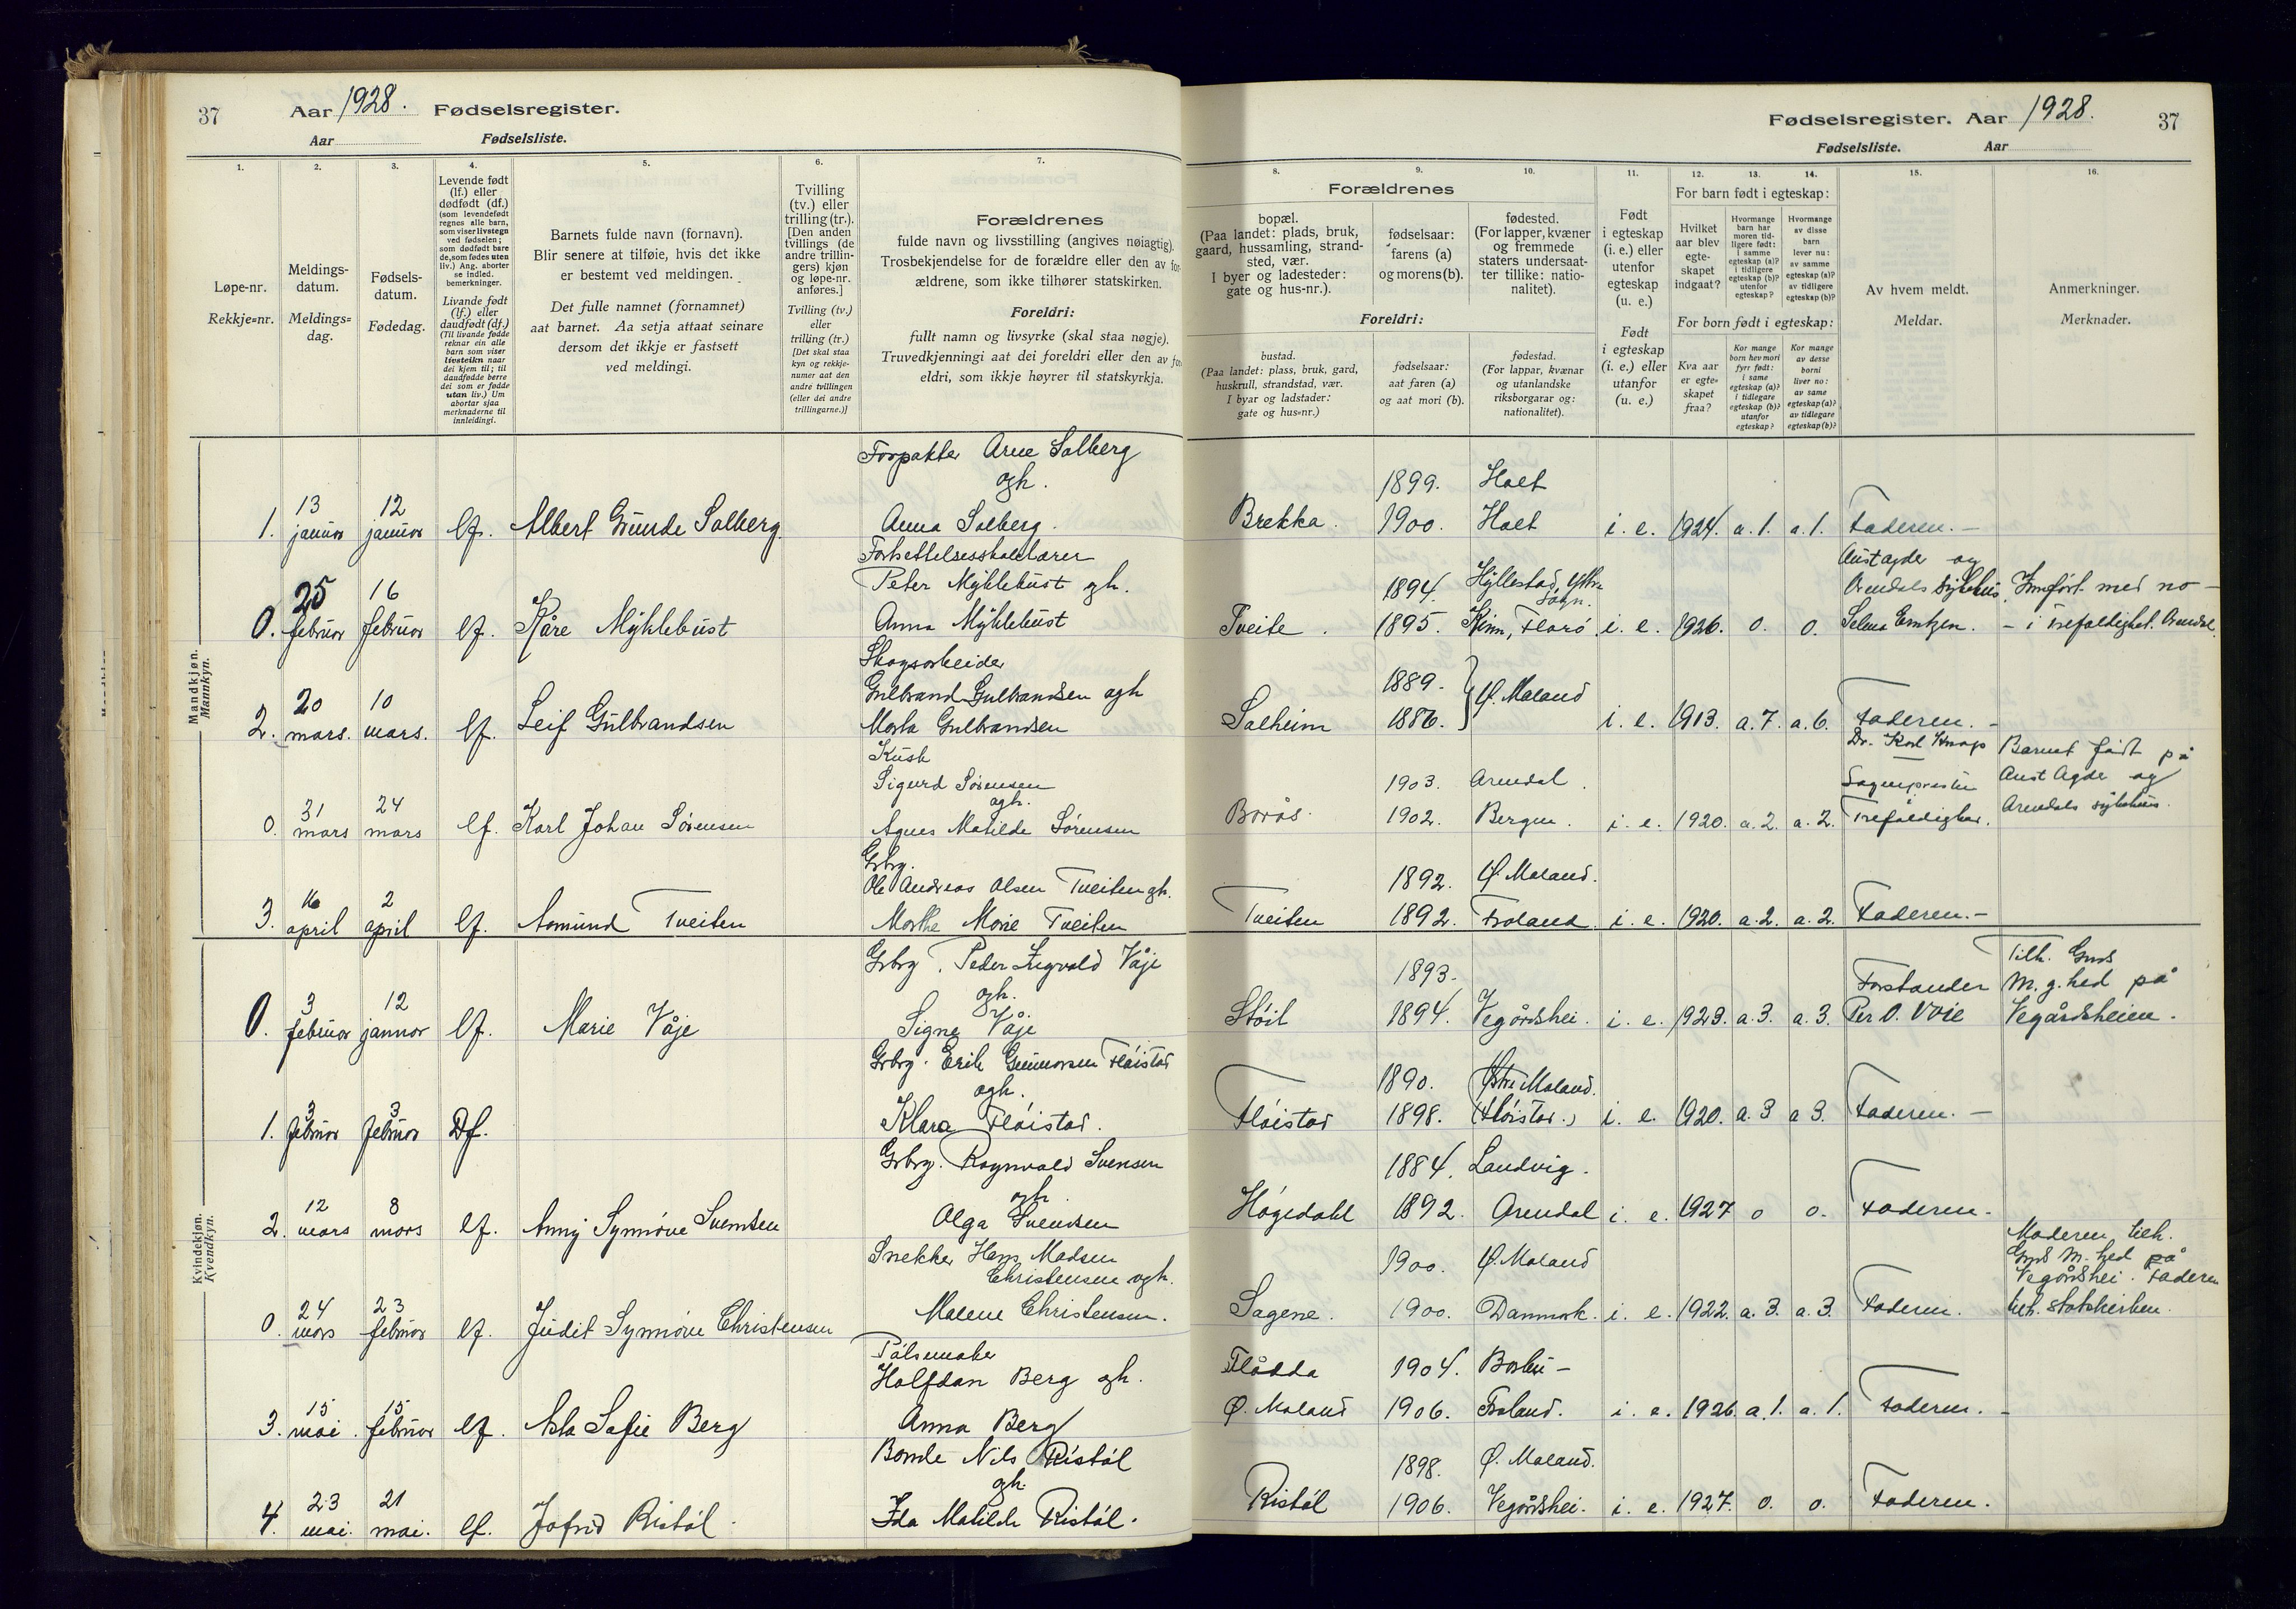 37 Aar 1928. Fødselsregister.
Aar Fødselsliste.
1. 2. 3. 4. 5. 6. 7.
Løpe-nr.
Rekkje=nr.
Meldings-
datum.
Meldings=
dag.
Fødsels-
datum.
Fødedag.
Levende født
(lf.) eller
dødfødt (df.)
(som levendefødt
regnes alle barn,
som viser livstegn
ved fødselen;
som dødfødt bare
de, som fødes uten
liv.) Ang. aborter
se indled.
bemerkninger.
Livande født
(lf.) eller
daudfødt (df.)
(Til livande fødde
reknar ein alle
barn som viser
livsteikn naar
dei kjem til; til
daudfødde berre
dei som er fødde
utan liv.) Um
abortar sjaa
merknaderne til
innleidingi.
Barnets fulde navn (fornavn).
Blir senere at tilføie, hvis det ikke
er bestemt ved meldingen.
Det fulle namnet (fornamnet)
aat barnet. Aa setja attaat seinare
dersom det ikkje er fastsett
ved meldingi.
Tvilling
(tv.) eller
trilling (tr.).
[Den anden
tvillings (de
andre trillin-
gers) kjøn
og løpe-nr.
anføres.]
Tvilling (tv.)
eller
trilling (tr.)
[Det skal staa
kyn og rekkje-
numer aat den
andre tvillingen
(eller dei andre
trillingarne.)]
Forældrenes
fulde navn og livsstilling (angives nøiagtig).
Trosbekjendelse for de forældre eller den av for-
ældrene, som ikke tilhører statskirken.
Foreldri:
fullt namn og livsyrke (skal staa nøgje).
Truvedkjenningi aat dei foreldri eller den av for-
eldri, som ikkje høyrer til statskyrkja.
Mandkjøn.
Mannkyn.
Forpakter Arne Solberg
ogh.
1. 13 januar 12 januar lf. Albert Gunde Solberg Anna Solberg.
Fortsettelsesskolelærer
Peter Myklebust ogh.
0. 25 februar 16 februar lf. Kåre Myklebust Anna Myklebust
Skogsarbeider
Gulbrand Gulbrandsen ogh
2. 20 mars. 10 mars. lf. Leif Gulbrandsen Marta Gulbrandsen
Kusk
Sigurd Sørensen
ogh.
0. 31 mars 24 mars lf. Karl Johan Sørensen Agnes Matilde Sørensen
Grbrg.
Ole Andreas Olsen Tveiten gh.
3. 16 april 2 april lf. Asmund Tveiten Marthe Marie Tveiten
Kvindekjøn.
Kvendkyn.
Grbrg. Peder Ingvald Våje
ogh.
0. 3 februar 12 januar lf. Marie Våje Signe Våje
Grbrg. Erik Gunnarsen Fløistad
ogh.
1. 3 februar 3 februar Df. Klara Fløistad.
Grbrg. Ragnvald Svensen
ogh.
2. 12 mars 8 mars lf. Anny Synnøve Svendsen Olga Svendsen
Snekker Hans Madsen
Christensen ogh.
0. 24 mars 23 februar lf. Judit Synnøve Christensen Malene Christensen.
Pølsemaker
Halfdan Berg gh.
3. 15 mai. 15 februar lf. Asla Sofie Berg Anna Berg
Bonde Nils Ristøl
gh.
4. 23 mai. 21 mai. lf. Jofrid Ristøl Ida Matilde Ristøl.
Fødselsregister. Aar 1928. 37
Fødselsliste. Aar
8. 9. 10. 11. 12. 13. 14. 15. 16.
Forældrenes
bopæl.
(Paa landet: plads, bruk,
gaard, hussamling, strand-
sted, vær.
I byer og ladesteder:
gate og hus-nr.).
fødselsaar:
farens (a)
og morens (b).
fødested.
(For lapper, kvæner
og fremmede
staters undersaat-
ter tillike: natio-
nalitet).
Foreldri:
bustad.
(Paa landet: plass, bruk, gard,
huskrull, strandstad, vær.
I byar og ladstader:
gate og hus=nr.)
fødselsaar:
aat faren (a)
og aat mori (b).
fødestad.
(For lappar, kvænar
og utanlandske
riksborgarar og:
nationalitet).
Født
i egteskap
(i. e.) eller
utenfor
egteskap
(u. e.)
Født
i egteskap
(i. e.) eller
utanfor
(u. e.)
For barn født i egteskap:
Hvilket
aar blev
egte-
skapet
indgaat?
Hvormange
barn har
moren tid-
ligere født:
i samme
egteskap (a)?
i tidligere
egteskap (b)?
utenfor
egteskap?
Hvormange
av disse
barn
lever nu:
av samme
egteskap (a)?
av tidligere
egteskap (b)?
For born født i egteskap:
Kva aar
er egte=
skapet
fraa?
Kor mange
born hev mori
fyrr født:
i same
egteskap (a)?
i tidlegare
egteskap (b)?
utanfor
egteskap?
Kor mange
av desse
borni
liver no:
av same
egteskap (a)?
av tidlegare
egteskap (b)?
Av hvem meldt.
Meldar.
Anmerkninger.
Merknader.
1899. Holt
Brekka. 1900. Holt i. e. 1924. a. 1. a. 1. Faderen.
Aust agder og
1894. Hyllestad, Arendals sykehus. Innført med no
Tveite. 1895. Kinn, Florø i. e. 1926. 0. 0. i Trefoldighet. Arendal.
1889.
Solheim 1886. Ø. Moland i. e. 1913. a. 7. a. 6. Faderen.
Barnet født på
1903. Arendal. Sognepresten Aust Agder og
Borås. 1902. Bergen. i. e. 1920. a. 2. a. 2. Trefoldighet. Arendals sykehus.
1892. Ø. Moland.
Tveiten 1892. Froland. i. e. 1920. a. 2. a. 2. Faderen.
Tilh.
1893. Forstander M. g. hed på
Støil 1894. Vegårdshei. i. e. 1923. a. 3. a. 3. Per O. Voie Vegårdsheien.
1890. Østre Moland.
Fløistad 1898. (Fløistad.) i. e. 1920. a. 3 a 3. Faderen.
1884. Landvig.
Høgedahl 1892. Arendal i. e. 1927 0 0. Faderen.
Moderen tilh.
1900. Ø. Moland M. hed på
Vegårdshei. Faderen
Sagene. 1900. Danmark. i. e. 1922. a. 3. a. 3. Faderen. tilh. statskirken.
Flådda 1904.
Ø. Moland 1906. Froland. i. e. 1926. a. 1. a. 1. Faderen.
1898. Ø. Moland.
Ristøl 1906. Vegårdshei. i. e. 1927. 0. 0. Faderen.